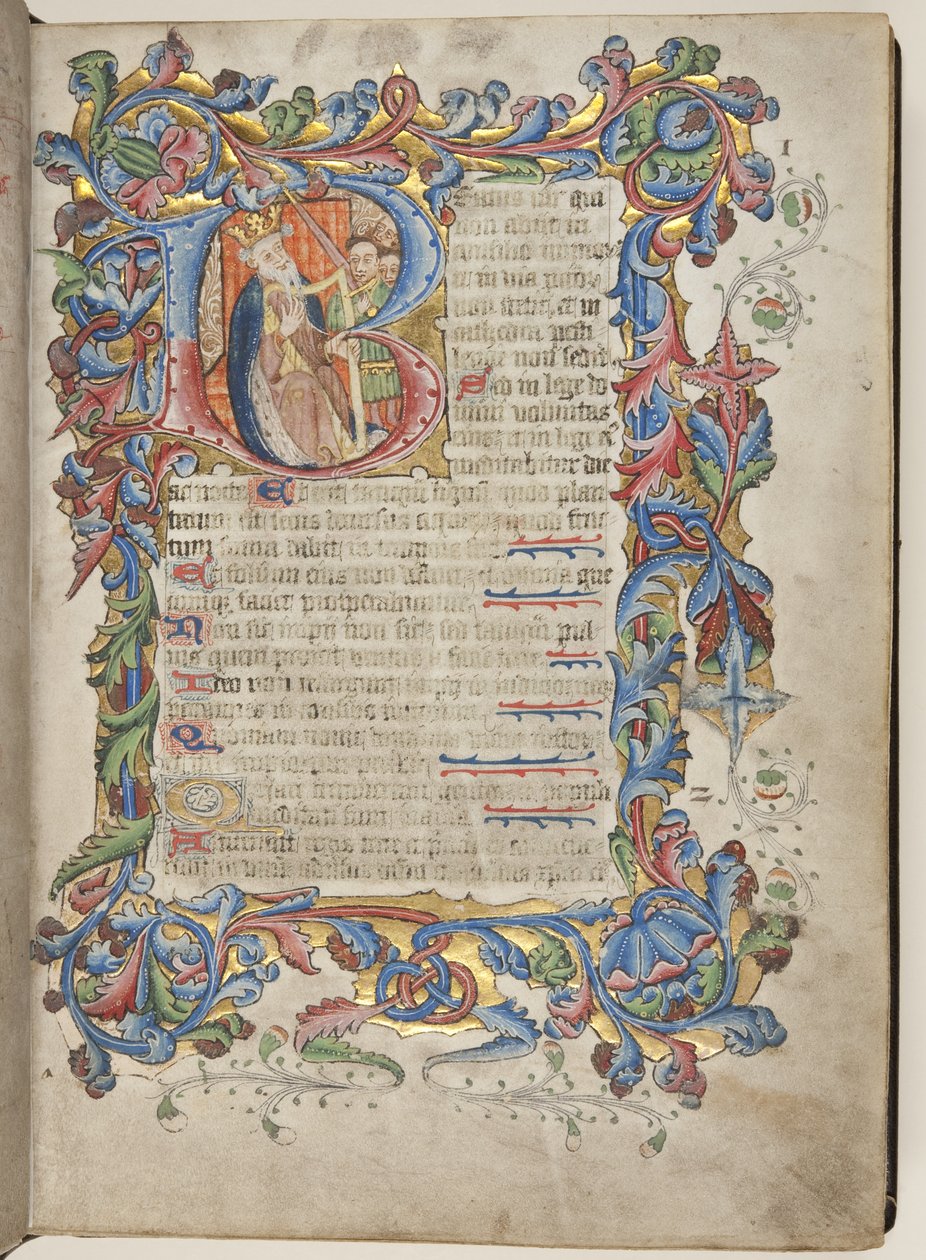 BEatus uir qui
non abijt in
consilio impior
et in uia pctor
non stetit et in
cathedra pesti
lencie non sedit
Sed in lege do
mini uoluntas
eius et in lege eꝰ
meditabitur die
1
ac nocte Et erit tanqm lignū quod plan
tatum est secus decursus aquarꝫ quod fruc
tum suum dabit in tempore suo
Et folium eius non defluet et omnia que
cumqꝫ faciet prosperabuntur
Non sic impij non sic sed tanqm pul
uis quem proicit uentus a facie terre
Ideo non resurgunt impij in iudicio neqꝫ
pctores in consilio iustorum
Qm nouit dominus uiam iustorꝫ
et iter impiorum peribit
2
Quare fremuerunt gentes et populi
meditati sunt inania
Astiterunt reges terre et principes
in unum aduersus dnm et aduersus xpm eiꝰ